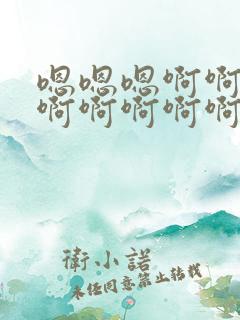 嗯嗯嗯啊啊
啊啊啊啊啊
衛小諾
未经同意禁止转载